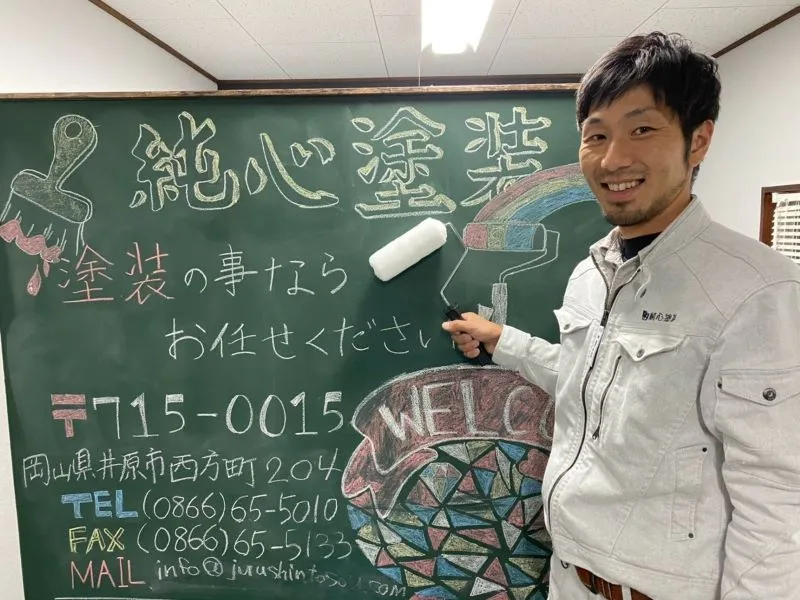 純心塗装
塗装の事なら
お任せください
〒715-0015
岡山県井原市西方町204
TEL(0866)65-5010
FAX(0866)65-5133
MAIL
WELCO
純心塗装